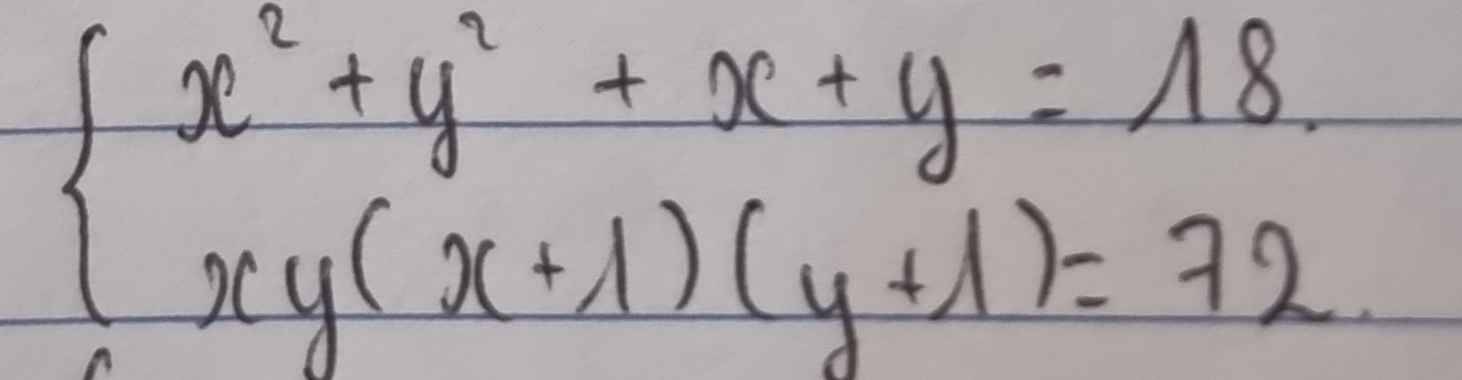 x² + y² + x + y = 18.
xy(x+1)(y+1)= 72.